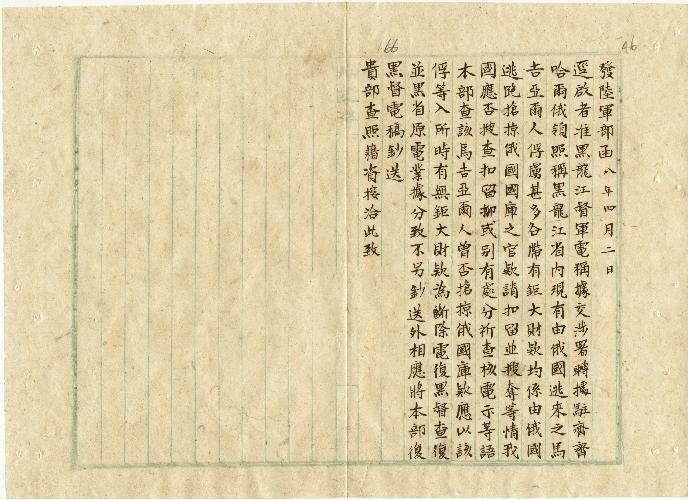 46
66
發陸軍部函 八年四月二日
逕啟者准黑龍江督軍電稱據交涉署轉據駐齊齊
哈爾俄領照稱黑龍江省內現有由俄國逃來之馬
吉亞爾人俘虜甚多各帶有鉅大財款均係由俄國
逃跑搶掠俄國國庫之官款請扣留並搜奪等情我
國應否搜查扣留抑或別有處分祈查核電示等語
本部查該馬吉亞爾人曾否搶掠俄國庫款應以該
俘等入所時有無鉅大財款為斷除電復黑督查復
並黑省原電業據分致不另鈔送外相應將本部復
黑督電稿鈔送
貴部查照轉咨接洽此致